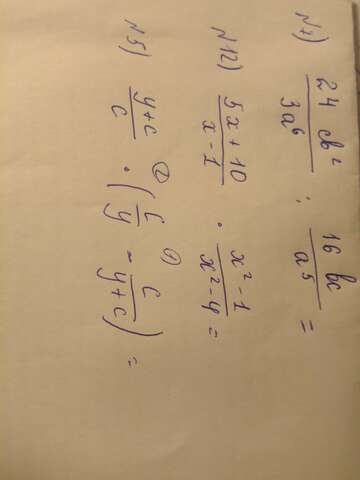 N7) 24 cb² / 3a⁶ : 16 bc / a⁵ =
N12) 5x + 10 / x - 1 · x² - 1 / x² - 4 =
N5) y+c / c ② · ( c / y ① - c / y+c ) =